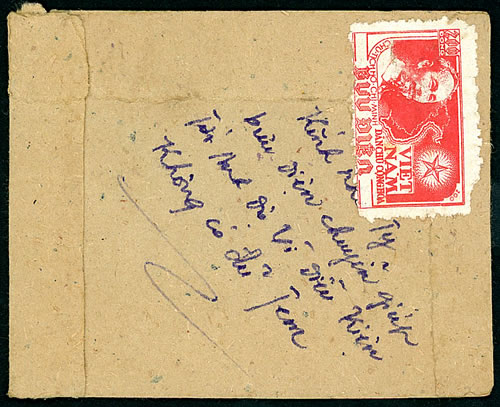 200
CHỦ TỊCH HỒ CHÍ MINH
VIỆT NAM
DÂN CHỦ CỘNG HÒA
BƯU ĐIỆN
Kính Ty
bưu điện chuyển giúp
vì điều kiện
không có đủ Tem